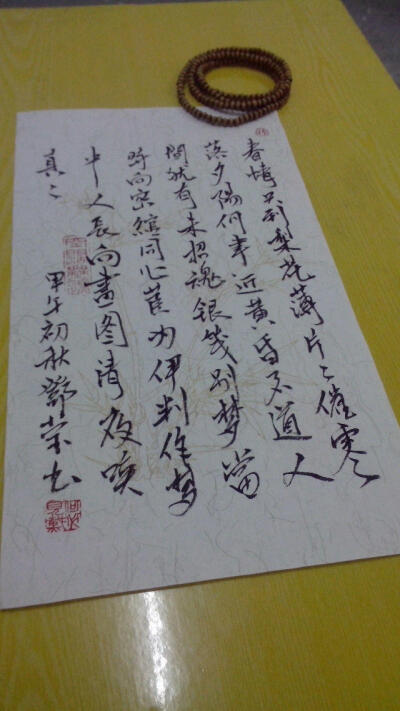 春情只到梨花薄片々催零
落夕陽何事近黄昏不道人
間犹有未招魂银笺别夢當
时句密綰同心苣为伊判作梦
中人長向畫图清夜唤
真々
甲午初秋鄧